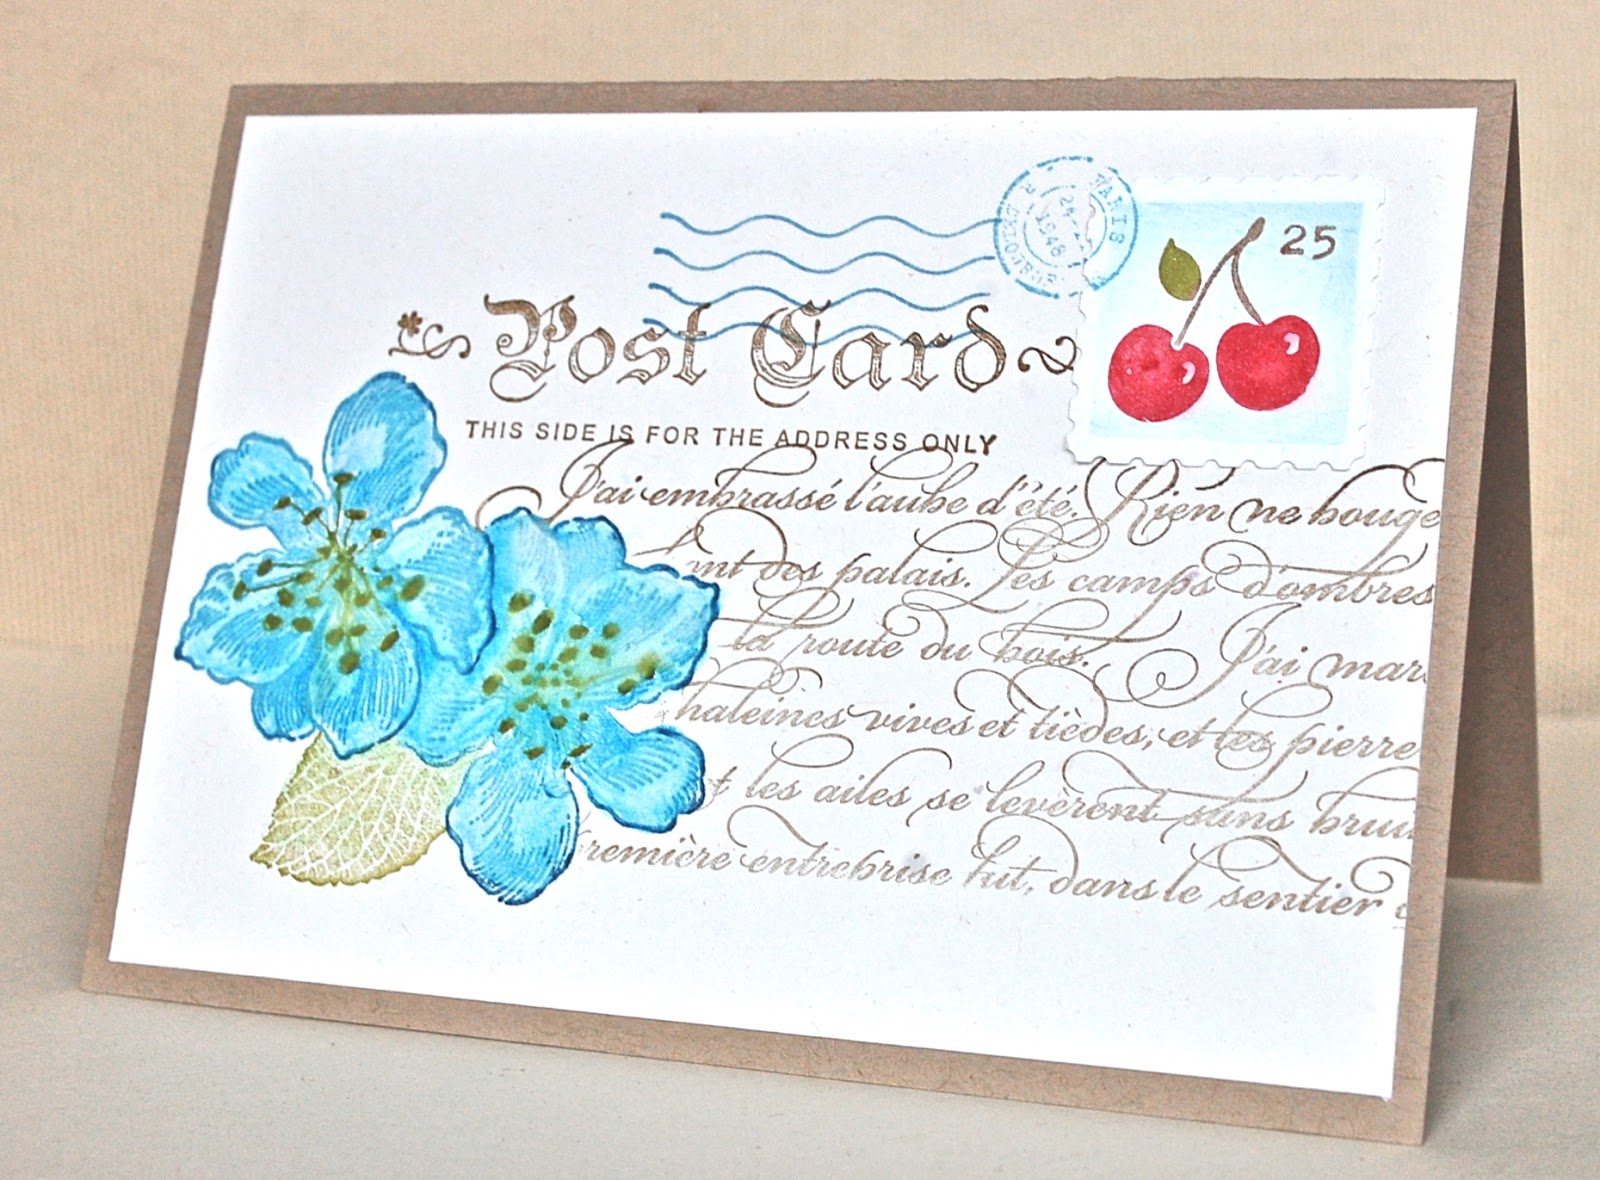 PARIS
1948
25
Post Card
THIS SIDE IS FOR THE ADDRESS ONLY
J'ai embrassé l'aube d'été. Rien ne bouge
des palais. Les camps d'ombres
la route du bois. J'ai mar
haleines vives et tièdes, et les pierre
t les ailes se levèrent sans brui
remière entreprise fut, dans le sentier